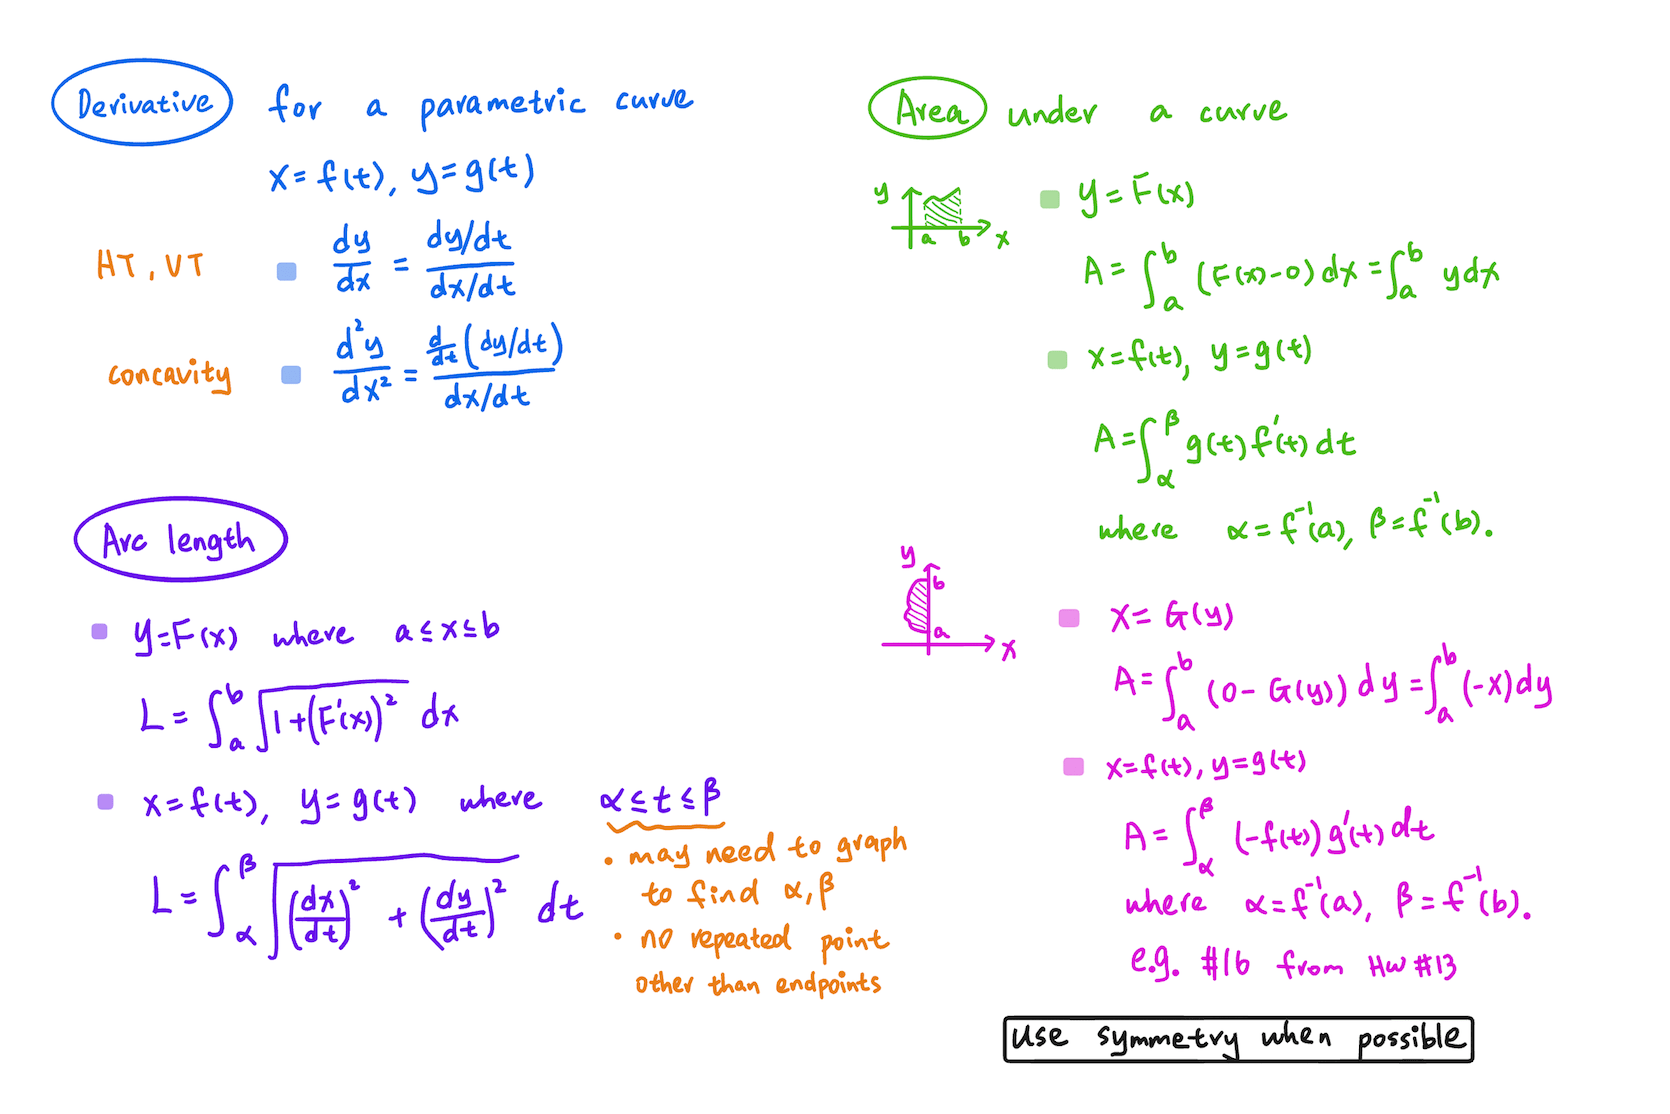 Derivative for a parametric curve
x = f(t), y = g(t)
HT, VT dy/dx = (dy/dt)/(dx/dt)
concavity d²y/dx² = (d/dt (dy/dt))/(dx/dt)
Arc length
y=F(x) where a ≤ x ≤ b
L = ∫_a^b √(1+(F'(x))²) dx
x = f(t), y = g(t) where α ≤ t ≤ β
• may need to graph
to find α, β
L = ∫_α^β √((dx/dt)² + (dy/dt)²) dt
• no repeated point
other than endpoints
Area under a curve
y
a b x
y = F(x)
A = ∫_a^b (F(x)-0) dx = ∫_a^b y dx
x = f(t), y = g(t)
A = ∫_α^β g(t) f'(t) dt
where α = f⁻¹(a), β = f⁻¹(b).
y
b
a
x
x = G(y)
A = ∫_a^b (0 - G(y)) dy = ∫_a^b (-x) dy
x = f(t), y = g(t)
A = ∫_α^β (-f(t)) g'(t) dt
where α = f⁻¹(a), β = f⁻¹(b).
e.g. #16 from HW #13
Use symmetry when possible